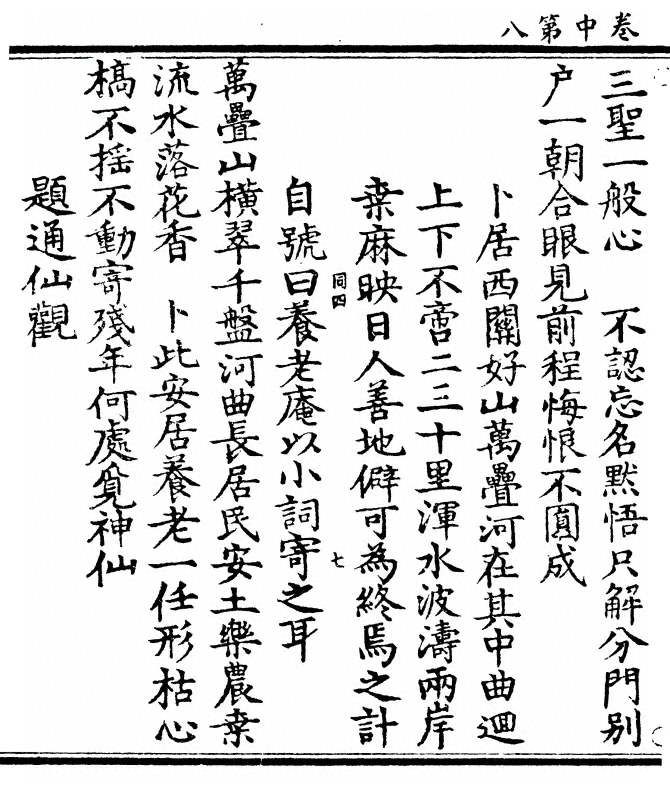 卷中第八
三聖一般心　不認忘名黙悟只解分門别
户一朝合眼見前程悔恨不圓成
卜居西關好山萬疊河在其中曲迴
上下不啻二三十里渾水波濤兩岸
桒麻映日人善地僻可為終焉之計
同四
七
自號曰養老庵以小詞寄之耳
萬疊山横翠千盤河曲長居民安土樂農桒
流水落花香　卜此安居養老一任形枯心
槁不摇不動寄殘年何處覓神仙
題通仙觀